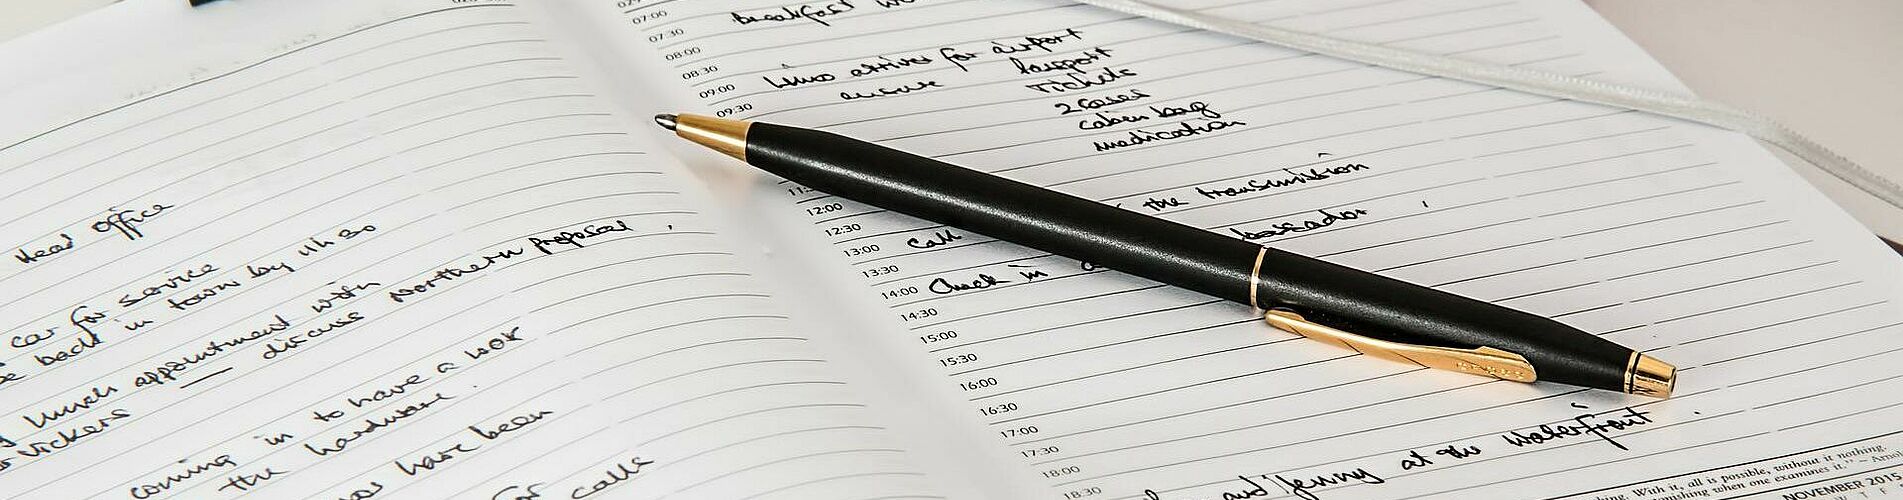 Head Office
car for service
back in town by 11h30
lunch appointment with
Vickers — discuss Northern proposal.
coming in to have a look
the hardware.
have been
for calls
07:00 breakfast
07:30
08:00
08:30
09:00 Limo arrives for airport
09:30 ensure Passport
Tickets
2 Cases
cabin bag
medication
11:
12:00 the transmission
12:30
13:00 Call
13:30
14:00 Check in
14:30
15:00
15:30
16:00
16:30
17:00
17:30
18:00
18:30 and Jenny at the Waterfront.
With it, all is possible, without it nothing.
when one examines it."
NOVEMBER 2015